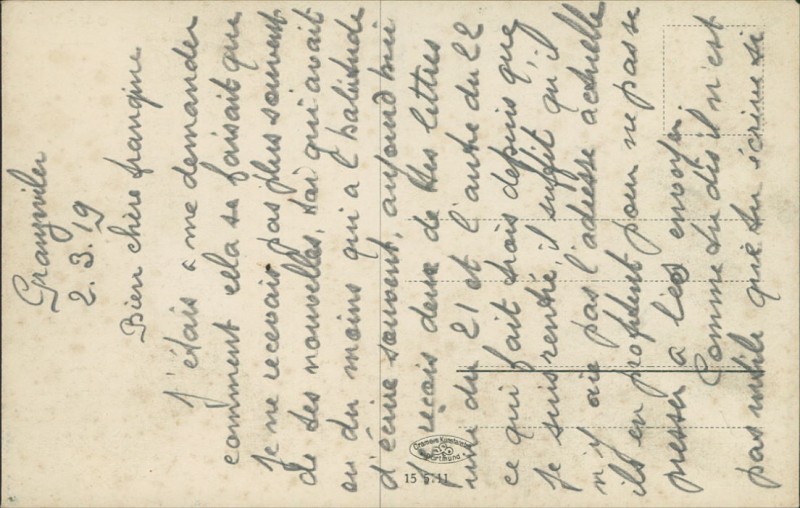 Granzviler
2.3.19
Bien chère frangine
J'étais à me demander
comment cella se faisait que
je ne recevais pas plus souvent
de tes nouvelles, toi qui avait
ou du moins qui a l'habitude
d'écrire souvent, aujourd'hui
je reçois deux de tes lettres
une du 21 et l'autre du 22
ce qui fait trois depuis que
je suis rentré, il suffit qu'il
n'y aie pas l'adresse actuelle
ils en profitent pour ne pas se
presser à les envoyer.
Comme tu dis il n'est
pas utile que tu écrive si
Cramers Kunstanstalt
Dortmund
15 5:11